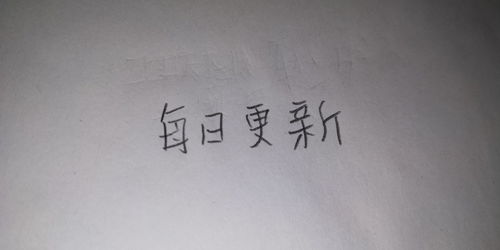 每日更新